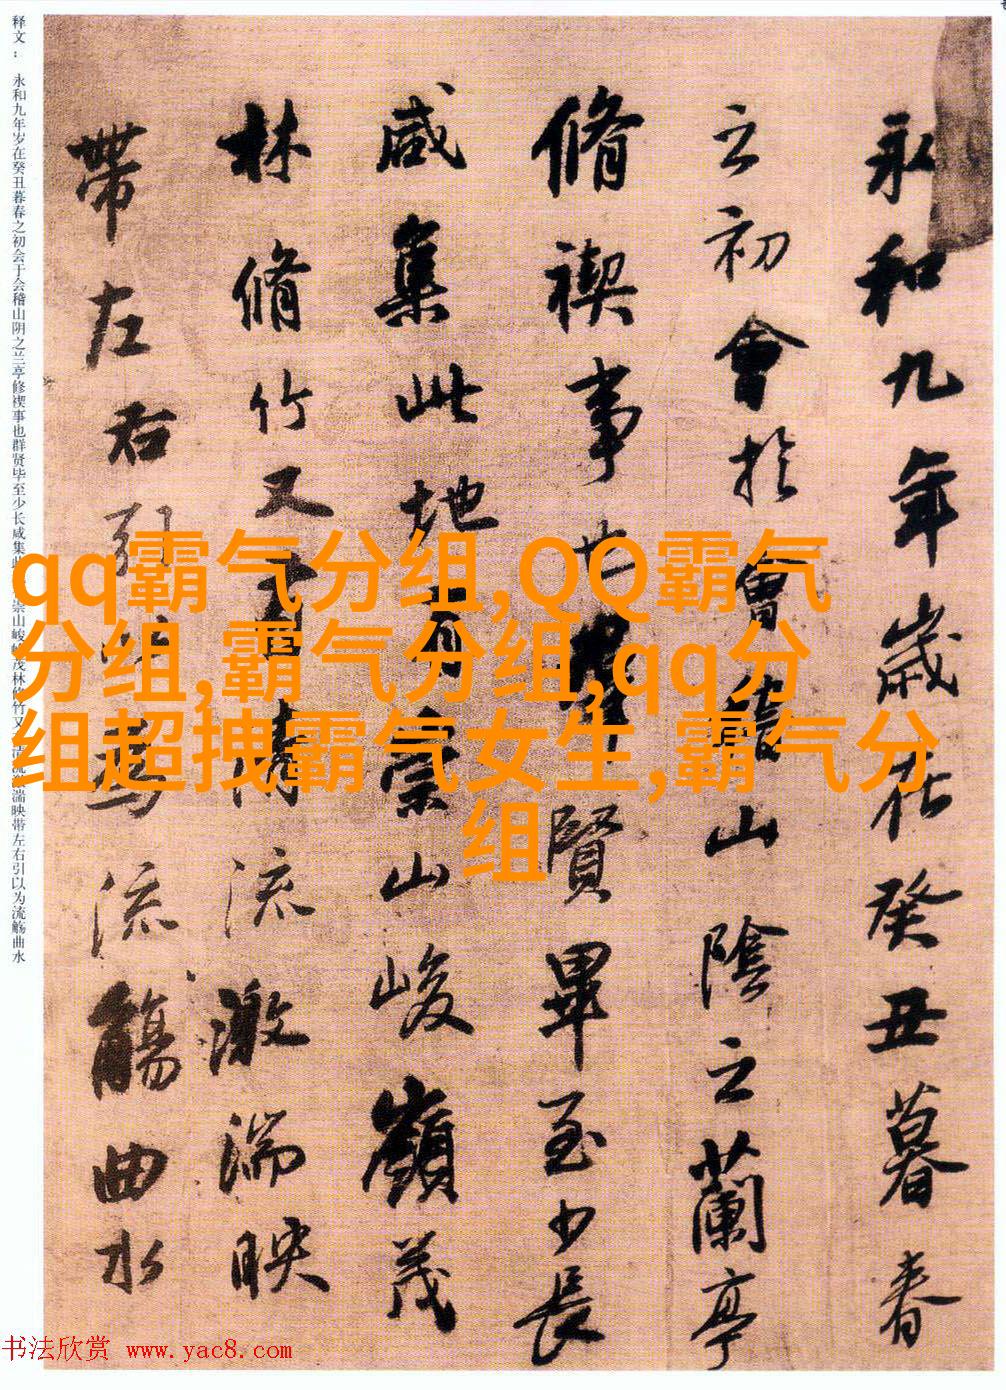 永和九年歲在癸丑暮春
之初會於會稽山陰之蘭亭
脩禊事也羣賢畢至少長
咸集此地有崇山峻嶺茂
林脩竹又有清流激湍映
帶左右引以為流觴曲水
释文： 永和九年岁在癸丑暮春之初会于会稽山阴之兰亭修禊事也群贤毕至少长咸集此崇山峻岭茂林修竹又流激湍映带左右引以为流觞曲水
qq霸气分组,QQ霸气
分组,霸气分组,qq分
组超拽霸气女生,霸气分
组
书法欣赏 www.yac8.com